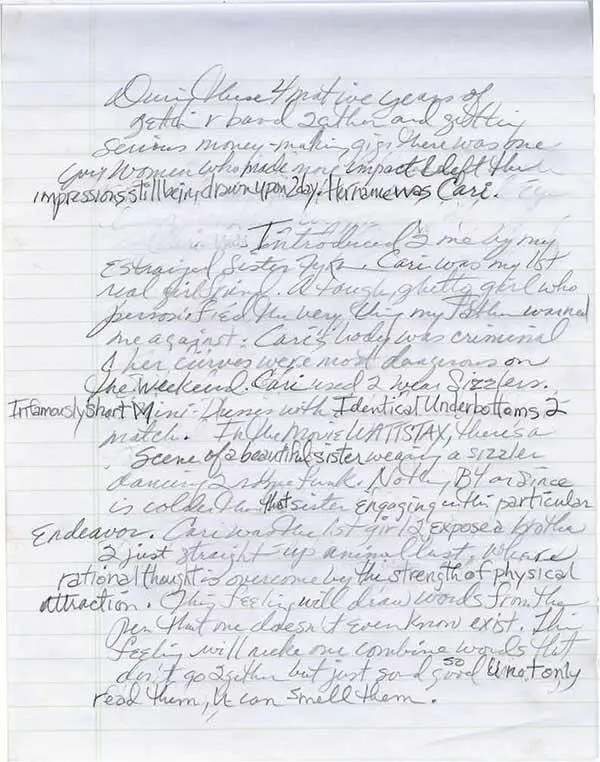 During these 4mative years of
gettin r band 2gether and getting
serious money-making gigs there was one
women who made more impact & left
impressions still being drawn upon 2day. Her name was Cari.
Introduced 2 me by my
estranged sister Cari was my 1st
real girlfriend. A tough, ghetto girl who
personified the very thing my father warned
me against. Cari's body was criminal
& her curves were most dangerous on
the weekend. Cari used 2 wear Sizzlers.
Infamously Short Mini-Dresses with Identical Underbottoms 2
match. In the movie WATTSTAX, there's a
scene of a beautiful sister wearing a sizzler
dancing 2 some funk. Nothing B4 or Since
is colder than that sister Engaging in this particular
Endeavor. Cari was the 1st girl 2 expose a brotha
2 just straight up animal lust, where
rational thought is overcome by the strength of physical
attraction. This feeling will draw words from the
pen that one doesn't even know exist. This
feeling will make one combine words that
don't go 2gether but just sound so good U not only
read them, U can smell them.